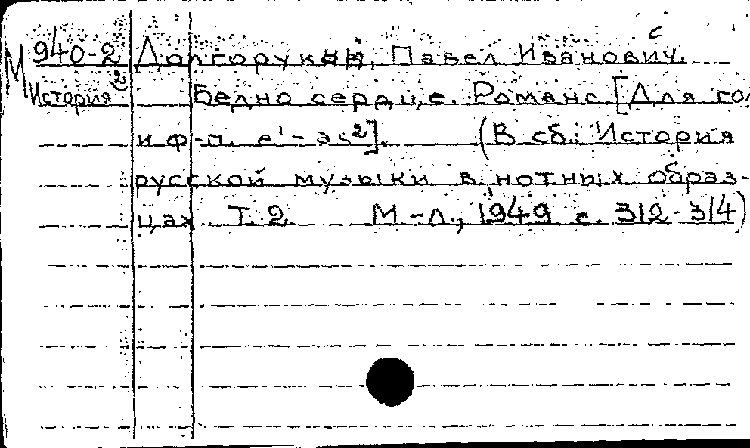 М 940-2 Долгорукий, Павел Иванович. с
История 2 Бедно сердце. Романс. [Для гол.
и ф-п. е¹-эs²]. (В сб.: История
русской музыки в нотных образ-
цах Т. 2 М.-Л., 1949 с. 312-314)